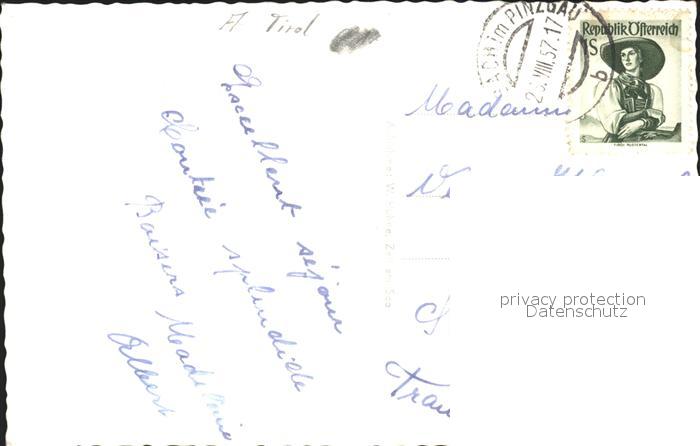 A Tirol
Excellent séjour
Contrée splendide
Baisers Madeleine
Albert
ACH im PINZGAU
23.VIII.57.17
b
Republik Österreich
1S
TIROL PUSTERTAL
Madame
privacy protection
Datenschutz